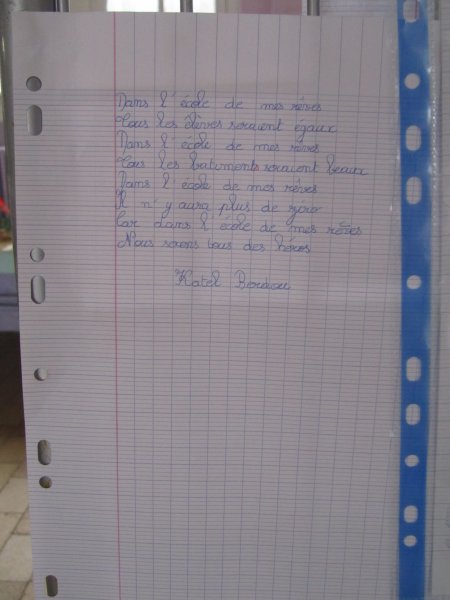 Dans l'école de mes rêves
Tous les élèves seraient égaux
Dans l'école de mes rêves
Tous les batiments seraient beaux
Dans l'école de mes rêves
Il n'y aura plus de zéro
Car dans l'école de mes rêves
Nous serons tous des héros
Katel